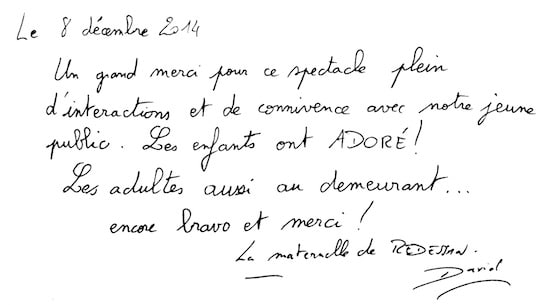 Le 8 décembre 2014
Un grand merci pour ce spectacle plein
d'interactions et de connivence avec notre jeune
public. Les enfants ont ADORÉ!
Les adultes aussi au demeurant...
encore bravo et merci!
La maternelle de REDESSAN.
David